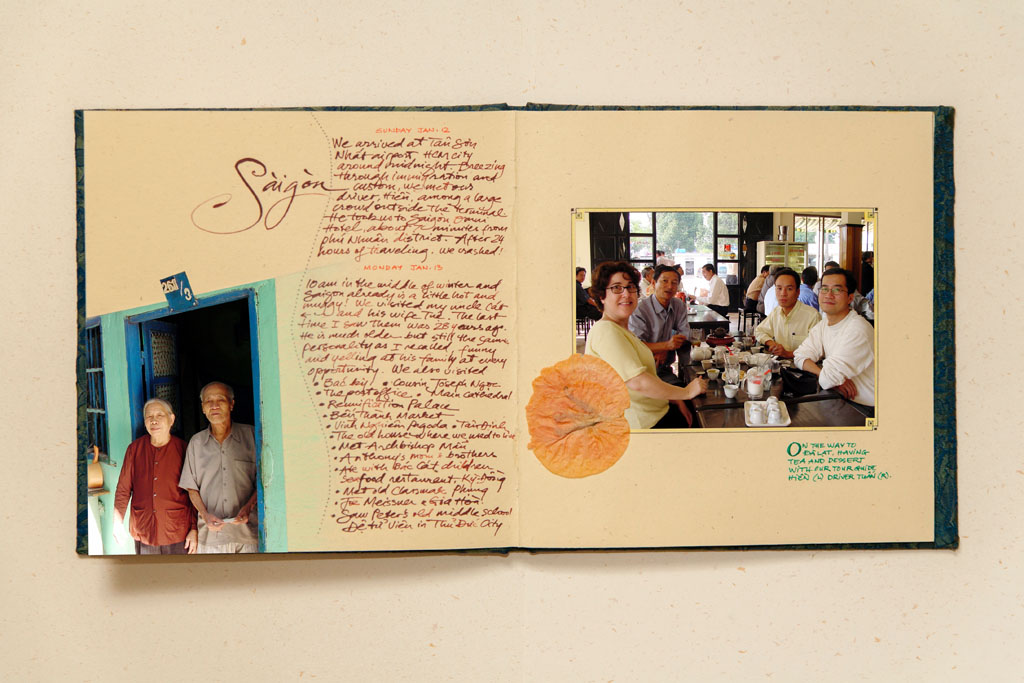 Sàigòn
SUNDAY JAN. 12
We arrived at Tân Sơn
Nhất airport, HCM city
around midnight. Breezing
through immigration and
custom, we met our
driver, Hiền, among a large
crowd outside the terminal.
He took us to Saigon Omni
Hotel, about 2 minutes from
phú Nhuận district. After 24
hours of traveling, we crashed!
MONDAY JAN. 13
10am in the middle of winter and
Saigon already is a little hot and
muggy! We visited my uncle Cát
and his wife Tué. The last
time I saw them was 28 years ago.
He is much older but still the same
personality as I recalled, funny
and yelling at his family at every
opportunity. We also visited
• Bác bảy • Cousin Joseph Ngọc
• The post office • Main Cathedral
• Reunification Palace
• Bến Thành Market
• Vĩnh Nghiêm Pagoda • Tân Định
• The old house where we used to live
• Met Archbishop Mẫn
• Anthony's mom & brothers
• Ate with Bác Cát children
Seafood restaurant. Kỳ Đồng
• Met old classmate Phụng
• Joe Meissner &
• Saw Peter's old middle school
Đệ tử Viện in Thủ Đức City
261/3
ON THE WAY TO
ĐÀ LẠT, HAVING
TEA AND DESSERT
WITH OUR TOUR GUIDE
HIỀN (L) DRIVER TUẤN (R).